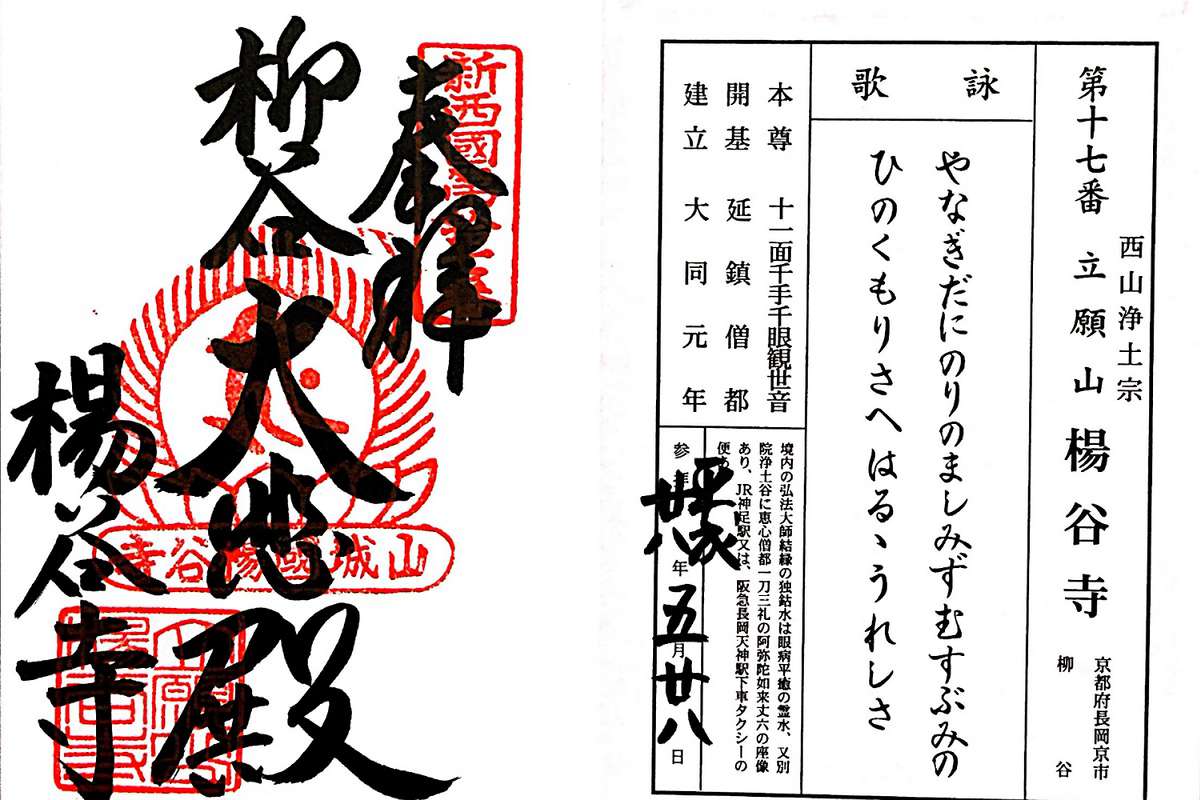 西山浄土宗
第十七番 立願山 楊谷寺
京都府長岡京市
柳谷
詠歌
やなぎだにのりのましみずむすぶみの
ひのくもりさへはるゝうれしさ
本尊 十一面千手千眼観世音
開基 延鎮僧都
建立 大同元年
境内の弘法大師結縁の独鈷水は眼病平癒の霊水、又別
院浄土谷に恵心僧都一刀三礼の阿弥陀如来丈六の座像
あり、JR神足駅又は、阪急長岡天神駅下車タクシーの
便あ
参拝 年 五月廿八日
新西國
奉拝
柳谷
大悲殿
山城國楊谷寺
楊谷寺